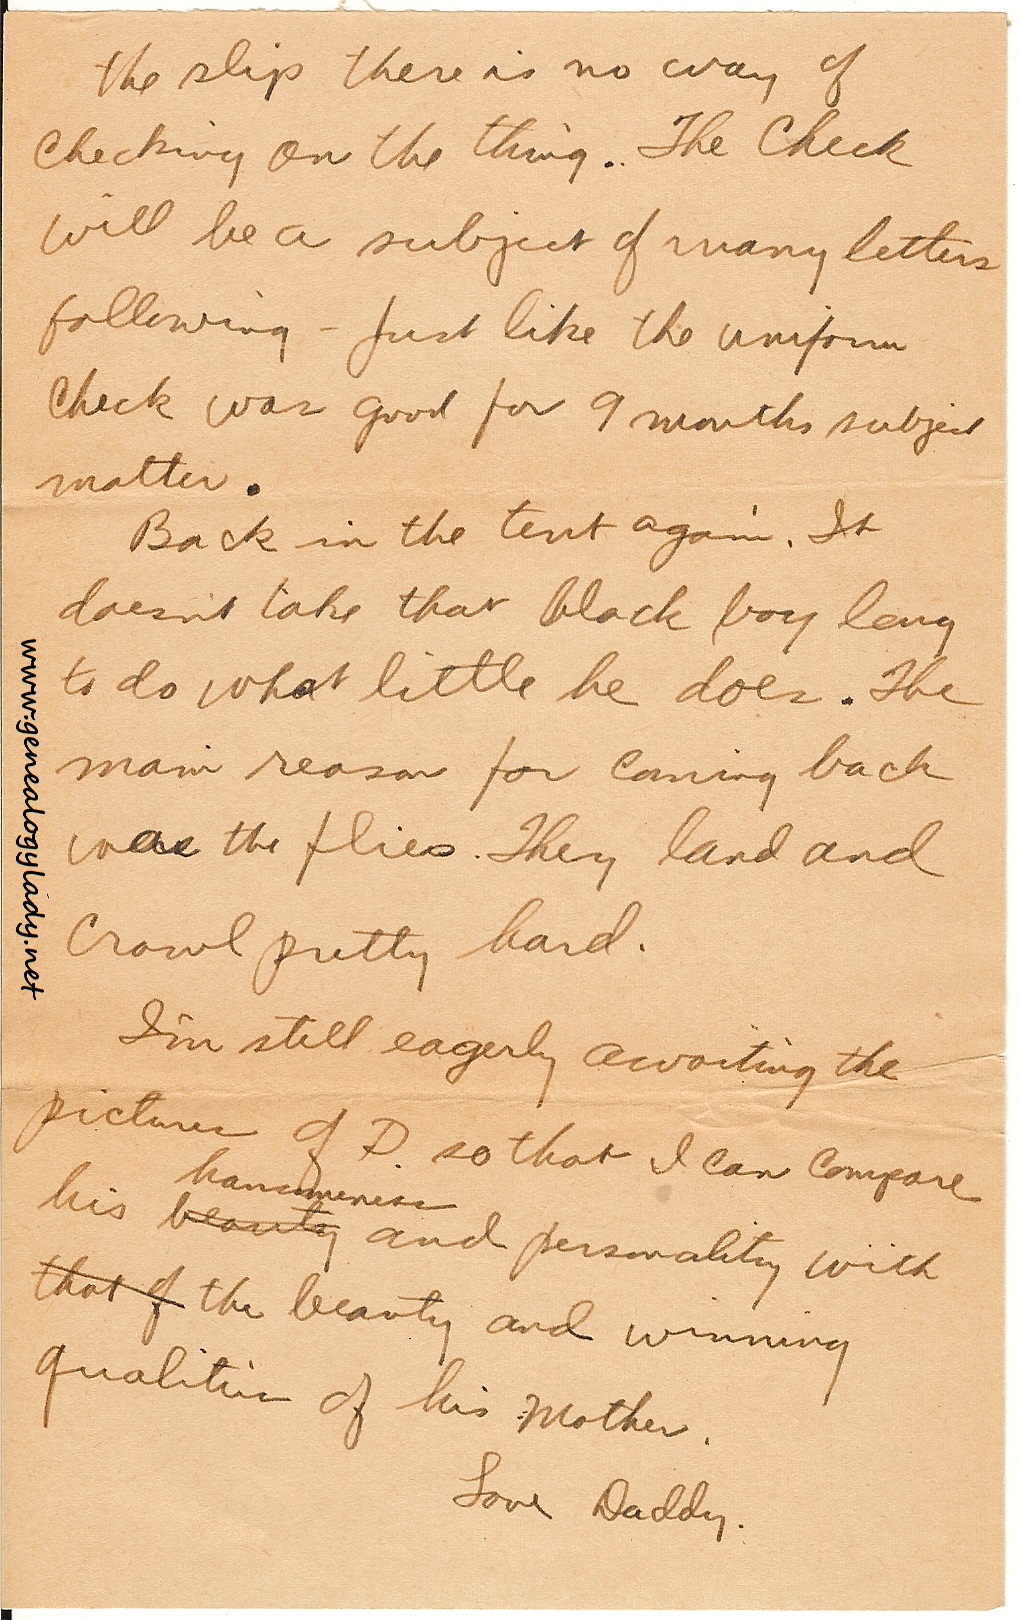 the slip there is no way of
checking on the thing.. The Check
will be a subject of many letters
following - just like the uniform
Check was good for 9 months subject
matter.
Back in the tent again. It
doesn't take that black boy long
to do what little he does. The
main reason for coming back
was the flies. They land and
Crawl pretty hard.
I'm still eagerly awaiting the
pictures of D. so that I can compare
hansomeness
his beauty and personality with
that of the beauty and winning
qualities of his Mother.
Love Daddy.
www.genealogylady.net